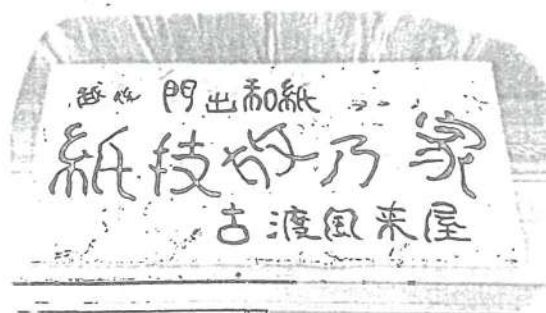 越後 門出和紙
紙技好乃家
古渡風来屋